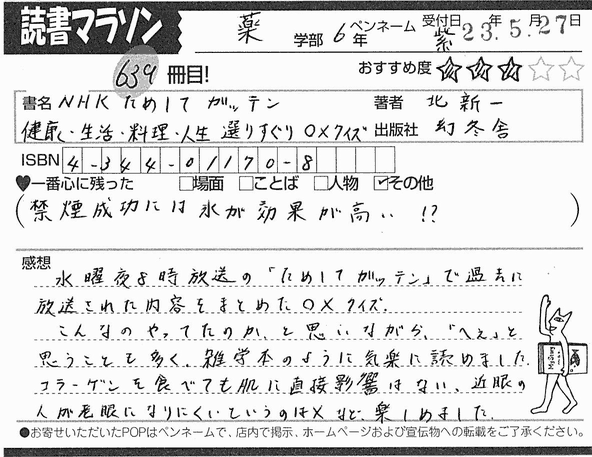 読書マラソン
薬 学部 6年 ペンネーム 紫 受付日 23年5月27日
639冊目!
おすすめ度 ★★★☆☆
書名 NHK ためして ガッテン 著者 北 新一
健康・生活・料理・人生 選りすぐり ○×クイズ 出版社 幻冬舎
ISBN 4-344-01170-8
♥一番心に残った □場面 □ことば □人物 ☑その他
(禁煙成功には氷が効果が高い!?)
感想
水曜夜8時放送の「ためしてガッテン」で過去に
放送された内容をまとめた○×クイズ.
こんなのやってたのか、と思いながら、「へぇ」と
思うことも多く、雑学本のように気楽に読めました.
コラーゲンを食べても肌に直接影響はない、近眼の
人が老眼になりにくいというのは×など、楽しめました.
●お寄せいただいたPOPはペンネームで、店内で掲示、ホームページおよび宣伝物への転載をご了承ください。